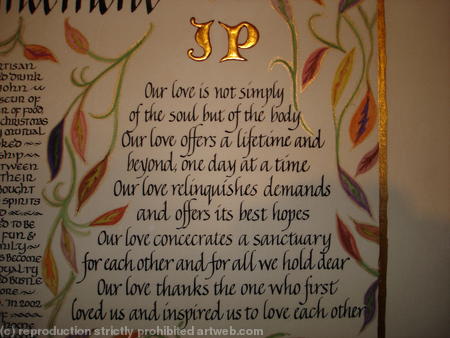 JP
Our love is not simply
of the soul but of the body
Our love offers a lifetime and
beyond, one day at a time
Our love relinquishes demands
and offers its best hopes
Our love concecrates a sanctuary
for each other and for all we hold dear
Our love thanks the one who first
loved us and inspired us to love each other
DRUNK
JOHN
OF FOOD.
CHRISTMAS
MUTUAL
BETWEEN
THEIR
BOUGHT
SPIRITS
AND
TO BE
FUN &
BECOME
BUSTLE
IN 2002
(c) reproduction strictly prohibited artweb.com